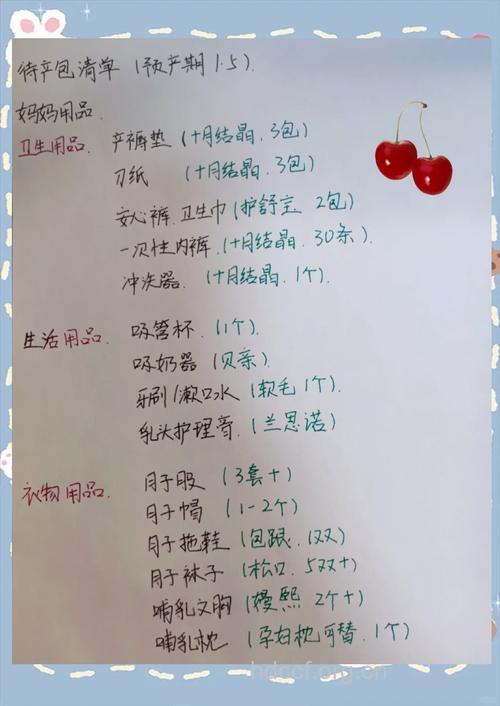 待产包清单（预产期1.5）.
妈妈用品.
卫生用品. 产褥垫（十月结晶，3包）
刀纸（十月结晶，3包）
安心裤.卫生巾（护舒宝 2包）
一次性内裤.（十月结晶，30条）.
冲洗器.（十月结晶，1个）.
生活用品. 吸管杯.（1个）.
吸奶器（贝亲）
牙刷/漱口水（软毛1个）.
乳头护理膏（兰思诺）
衣物用品. 月子服（3套+）
月子帽（1-2个）
月子拖鞋（包跟.1双）
月子袜子（松口.5双+）
哺乳文胸（嫚熙 2个+）
哺乳枕（孕妇枕可替.1个）
hdccf.org.cn